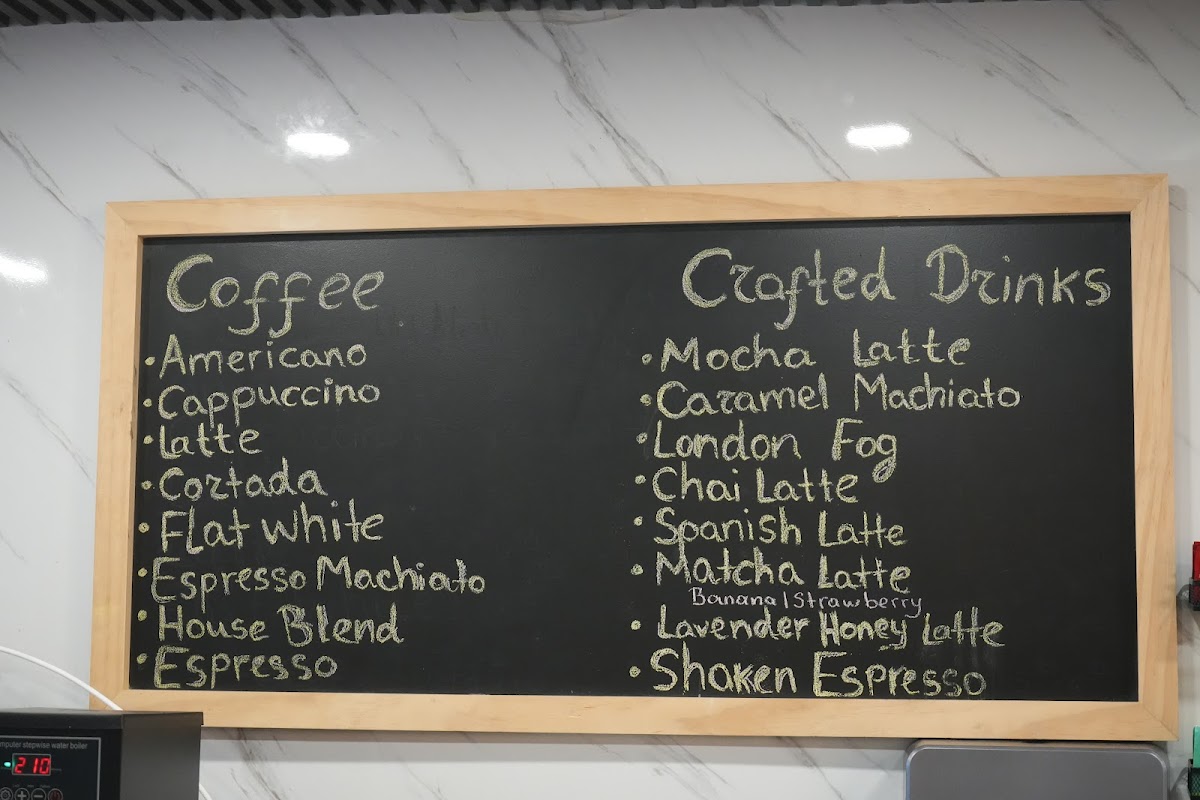 Coffee
• Americano
• Cappuccino
• Latte
• Cortada
• Flat white
• Espresso Machiato
• House Blend
• Espresso
Crafted Drinks
• Mocha Latte
• Caramel Machiato
• London Fog
• Chai Latte
• Spanish Latte
• Matcha Latte
Banana | Strawberry
• Lavender Honey Latte
• Shaken Espresso
mputer stepwise water boiler
210